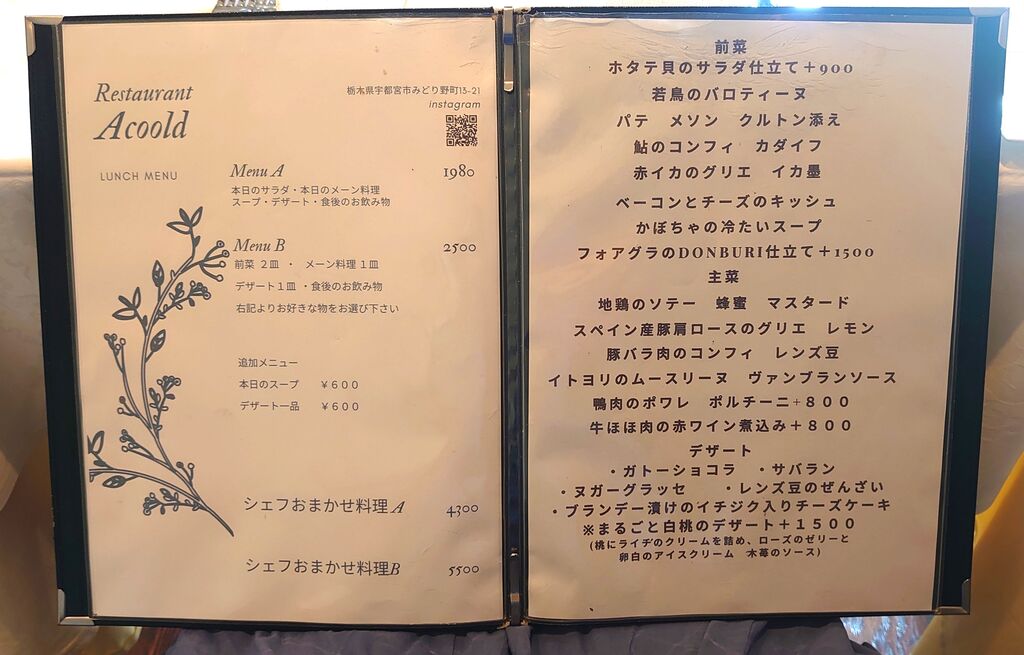 Restaurant
Acoold
栃木県宇都宮市みどり野町13-21
instagram
LUNCH MENU
Menu A 1980
本日のサラダ・本日のメーン料理
スープ・デザート・食後のお飲み物
Menu B 2500
前菜 2皿 ・ メーン料理 1皿
デザート1皿 ・食後のお飲み物
右記よりお好きな物をお選び下さい
追加メニュー
本日のスープ ¥600
デザート一品 ¥600
シェフおまかせ料理A 4300
シェフおまかせ料理B 5500
前菜
ホタテ貝のサラダ仕立て+900
若鳥のバロティーヌ
パテ メゾン クルトン添え
鮎のコンフィ カダイフ
赤イカのグリエ イカ墨
ベーコンとチーズのキッシュ
かぼちゃの冷たいスープ
フォアグラのDONBURI仕立て+1500
主菜
地鶏のソテー 蜂蜜 マスタード
スペイン産豚肩ロースのグリエ レモン
豚バラ肉のコンフィ レンズ豆
イトヨリのムースリーヌ ヴァンブランソース
鴨肉のポワレ ポルチーニ+800
牛ほほ肉の赤ワイン煮込み+800
デザート
・ガトーショコラ ・サバラン
・ヌガーグラッセ ・レンズ豆のぜんざい
・ブランデー漬けのイチジク入りチーズケーキ
※まるごと白桃のデザート+1500
(桃にライチのクリームを詰め、ローズのゼリーと
卵白のアイスクリーム 木苺のソース)